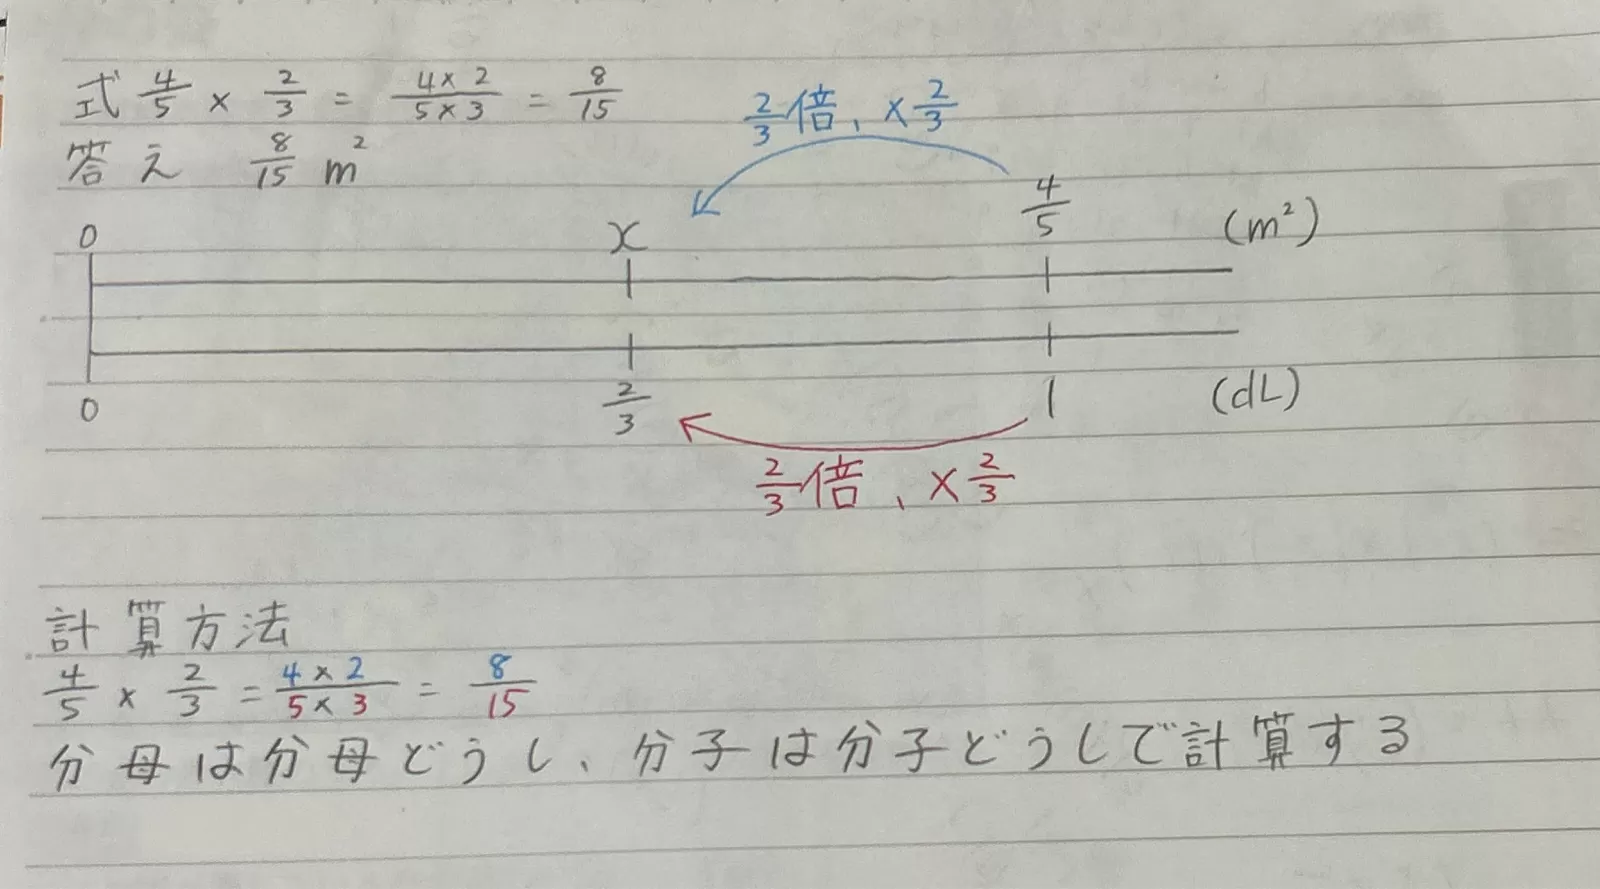 式 4/5 × 2/3 = 4×2/5×3 = 8/15
答え 8/15 m²
2/3倍、×2/3
0 x 4/5 (m²)
0 2/3 1 (dL)
2/3倍、×2/3
計算方法
4/5 × 2/3 = 4×2/5×3 = 8/15
分母は分母どうし、分子は分子どうしで計算する